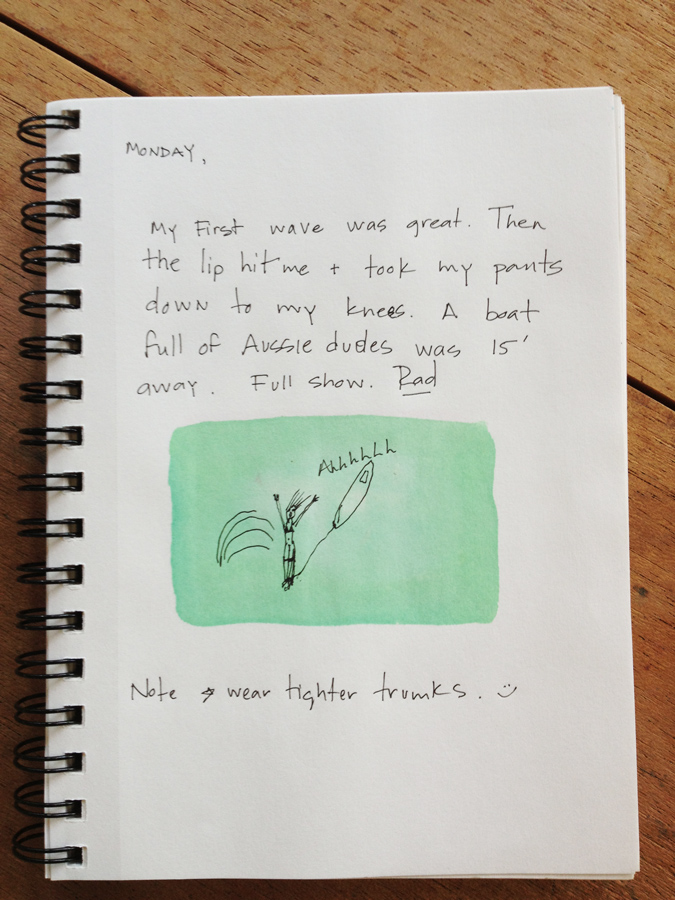 MONDAY,
My First wave was great. Then
the lip hit me + took my pants
down to my knees. A boat
full of Aussie dudes was 15'
away. Full show. Rad
Ahhhhhh
Note → wear tighter trunks. :)